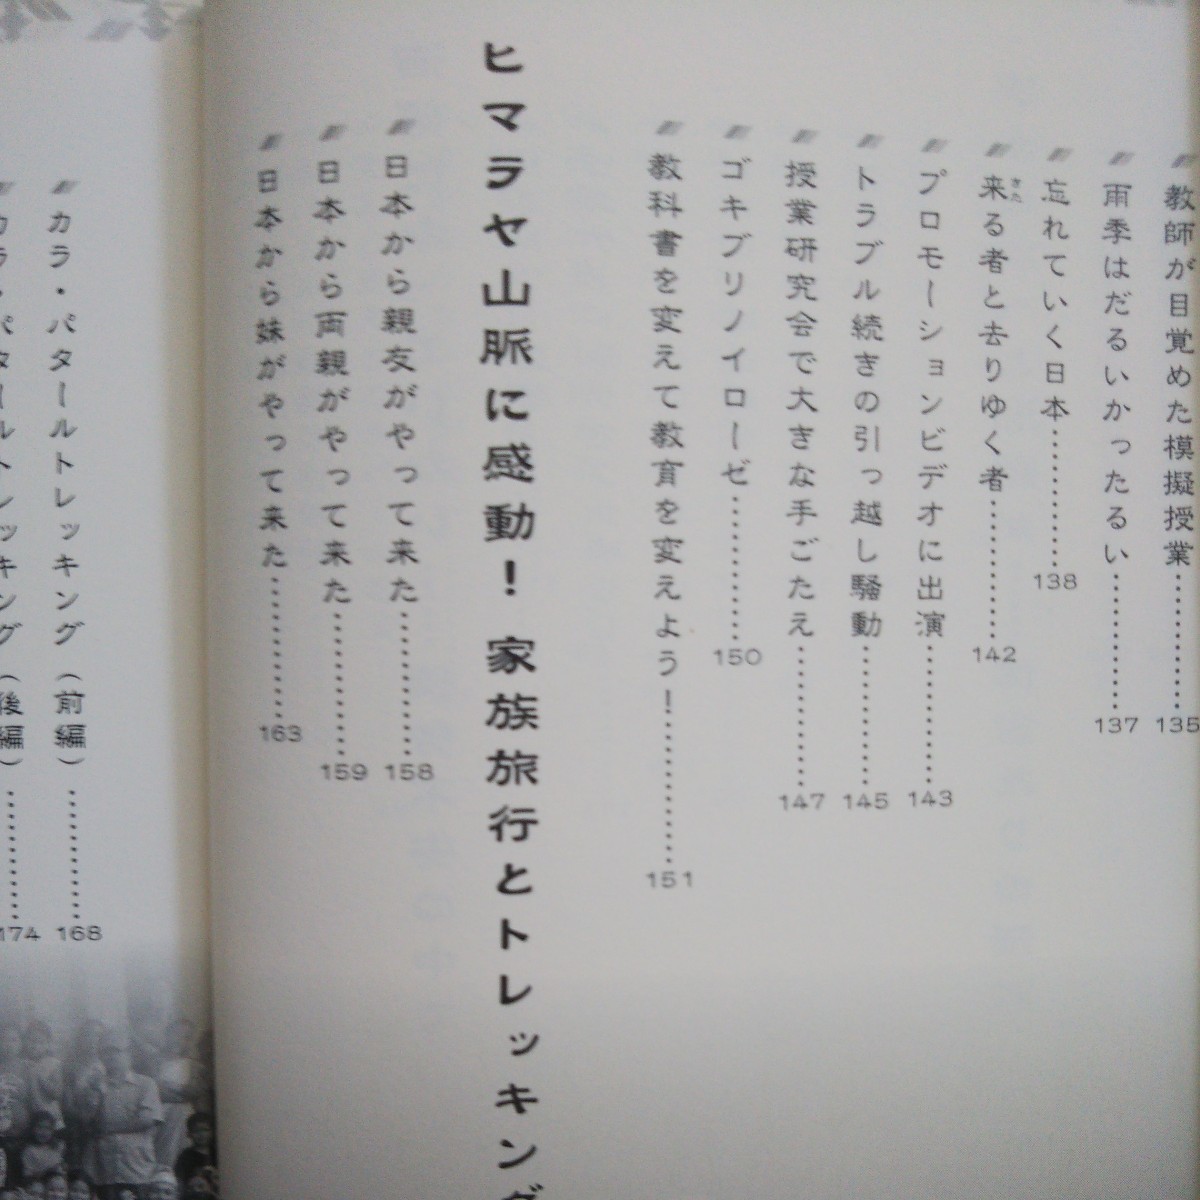 教師が目覚めた模擬授業…………135
雨季はだるいかったるい…………137
忘れていく日本…………138
来る者と去りゆく者…………142
きた
プロモーションビデオに出演…………143
トラブル続きの引っ越し騒動…………145
授業研究会で大きな手ごたえ…………147
ゴキブリノイローゼ…………150
教科書を変えて教育を変えよう！…………151
ヒマラヤ山脈に感動！ 家族旅行とトレッキング
日本から親友がやって来た…………158
日本から両親がやって来た…………159
日本から妹がやって来た…………163
カラ・パタールトレッキング（前編）…………168
カラ・パタールトレッキング（後編）…………174